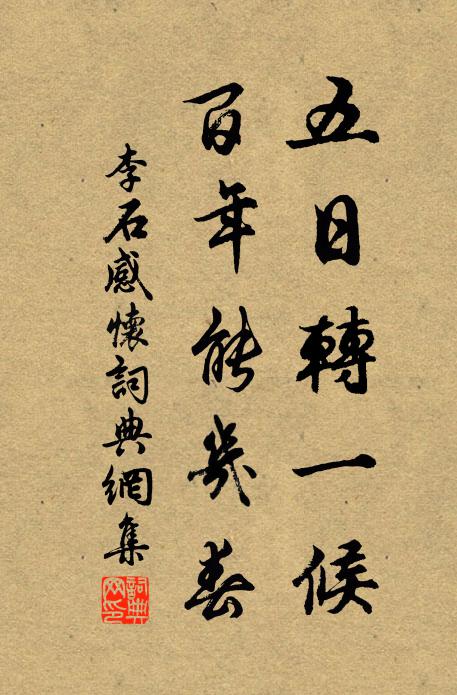 五日轉一候
百年能幾春
李石感懷詞典網集
詞典網印